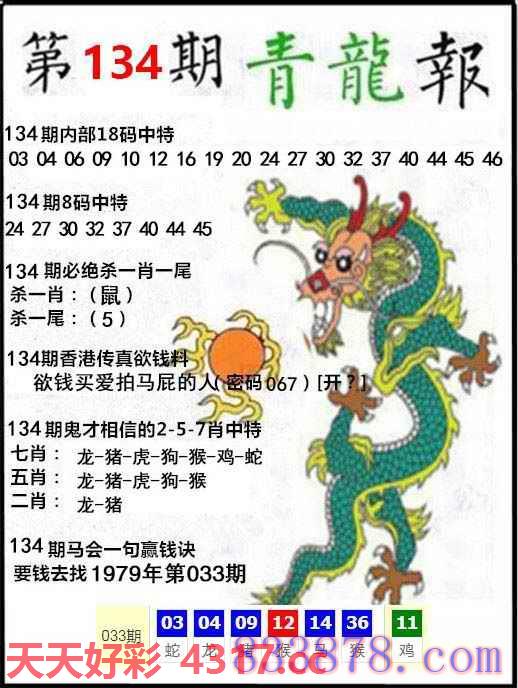 第134期青龍報
134期内部18码中特
03 04 06 09 10 12 16 19 20 24 27 30 32 37 40 44 45 46
134期8码中特
24 27 30 32 37 40 44 45
134期必绝杀一肖一尾
杀一肖：（鼠）
杀一尾：（5）
134期香港传真欲钱料
欲钱买爱拍马屁的人（密码067）[开？]
134期鬼才相信的2-5-7肖中特
七肖： 龙-猪-虎-狗-猴-鸡-蛇
五肖： 龙-猪-虎-狗-猴
二肖： 龙-猪
134期马会一句赢钱诀
要钱去找1979年第033期
033期 03 04 09 12 14 36 11
蛇 龙 猪 猴 马 猴 鸡
天天好彩 4317.cc
833878.com